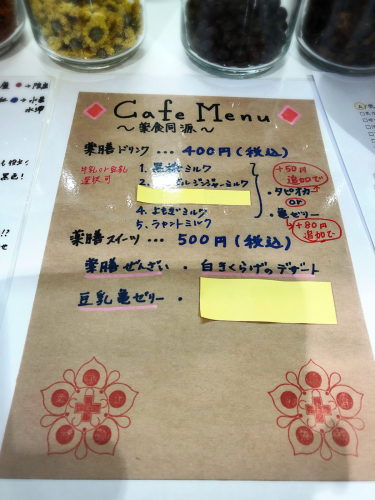 Cafe Menu
～薬食同源～
薬膳ドリンク … 400円（税込）
牛乳or豆乳
選択可
1. 黒糖ミルク
4. よもぎミルク
5. ラテントミルク
+50円
追加で
・タピオカ
or
・亀ゼリー
+80円
追加で
薬膳スイーツ … 500円（税込）
薬膳ぜんざい ・ 白きくらげのデザート
豆乳亀ゼリー ・